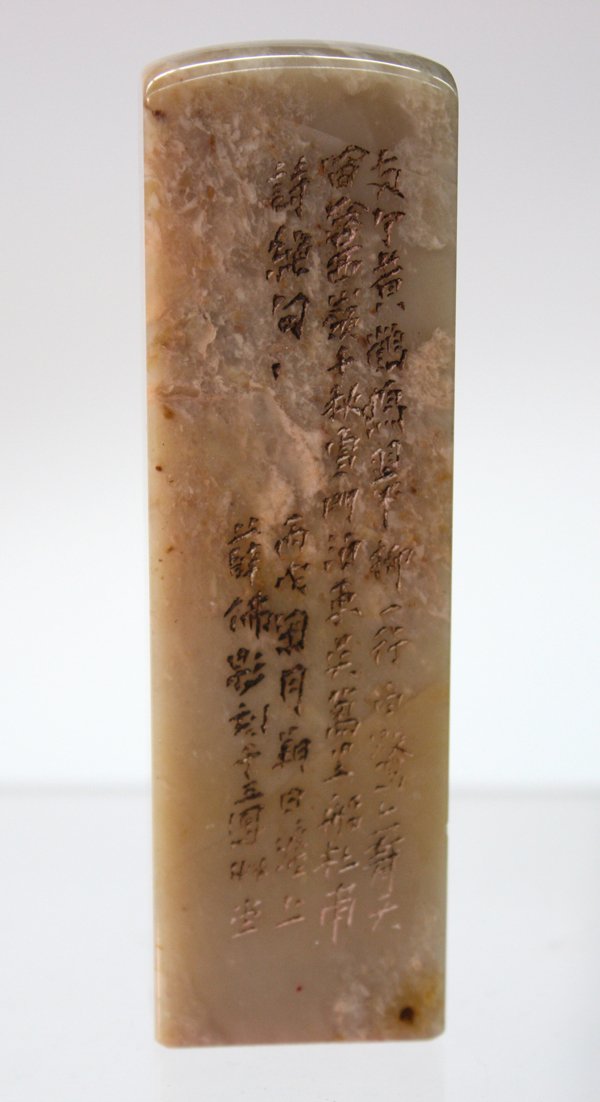 兩个黃鸝鳴翠柳一行白鷺上青天
窗含西嶺千秋雪門泊東吳萬里船杜甫
詩絕句
月 上
薛佛影刻于 艸堂